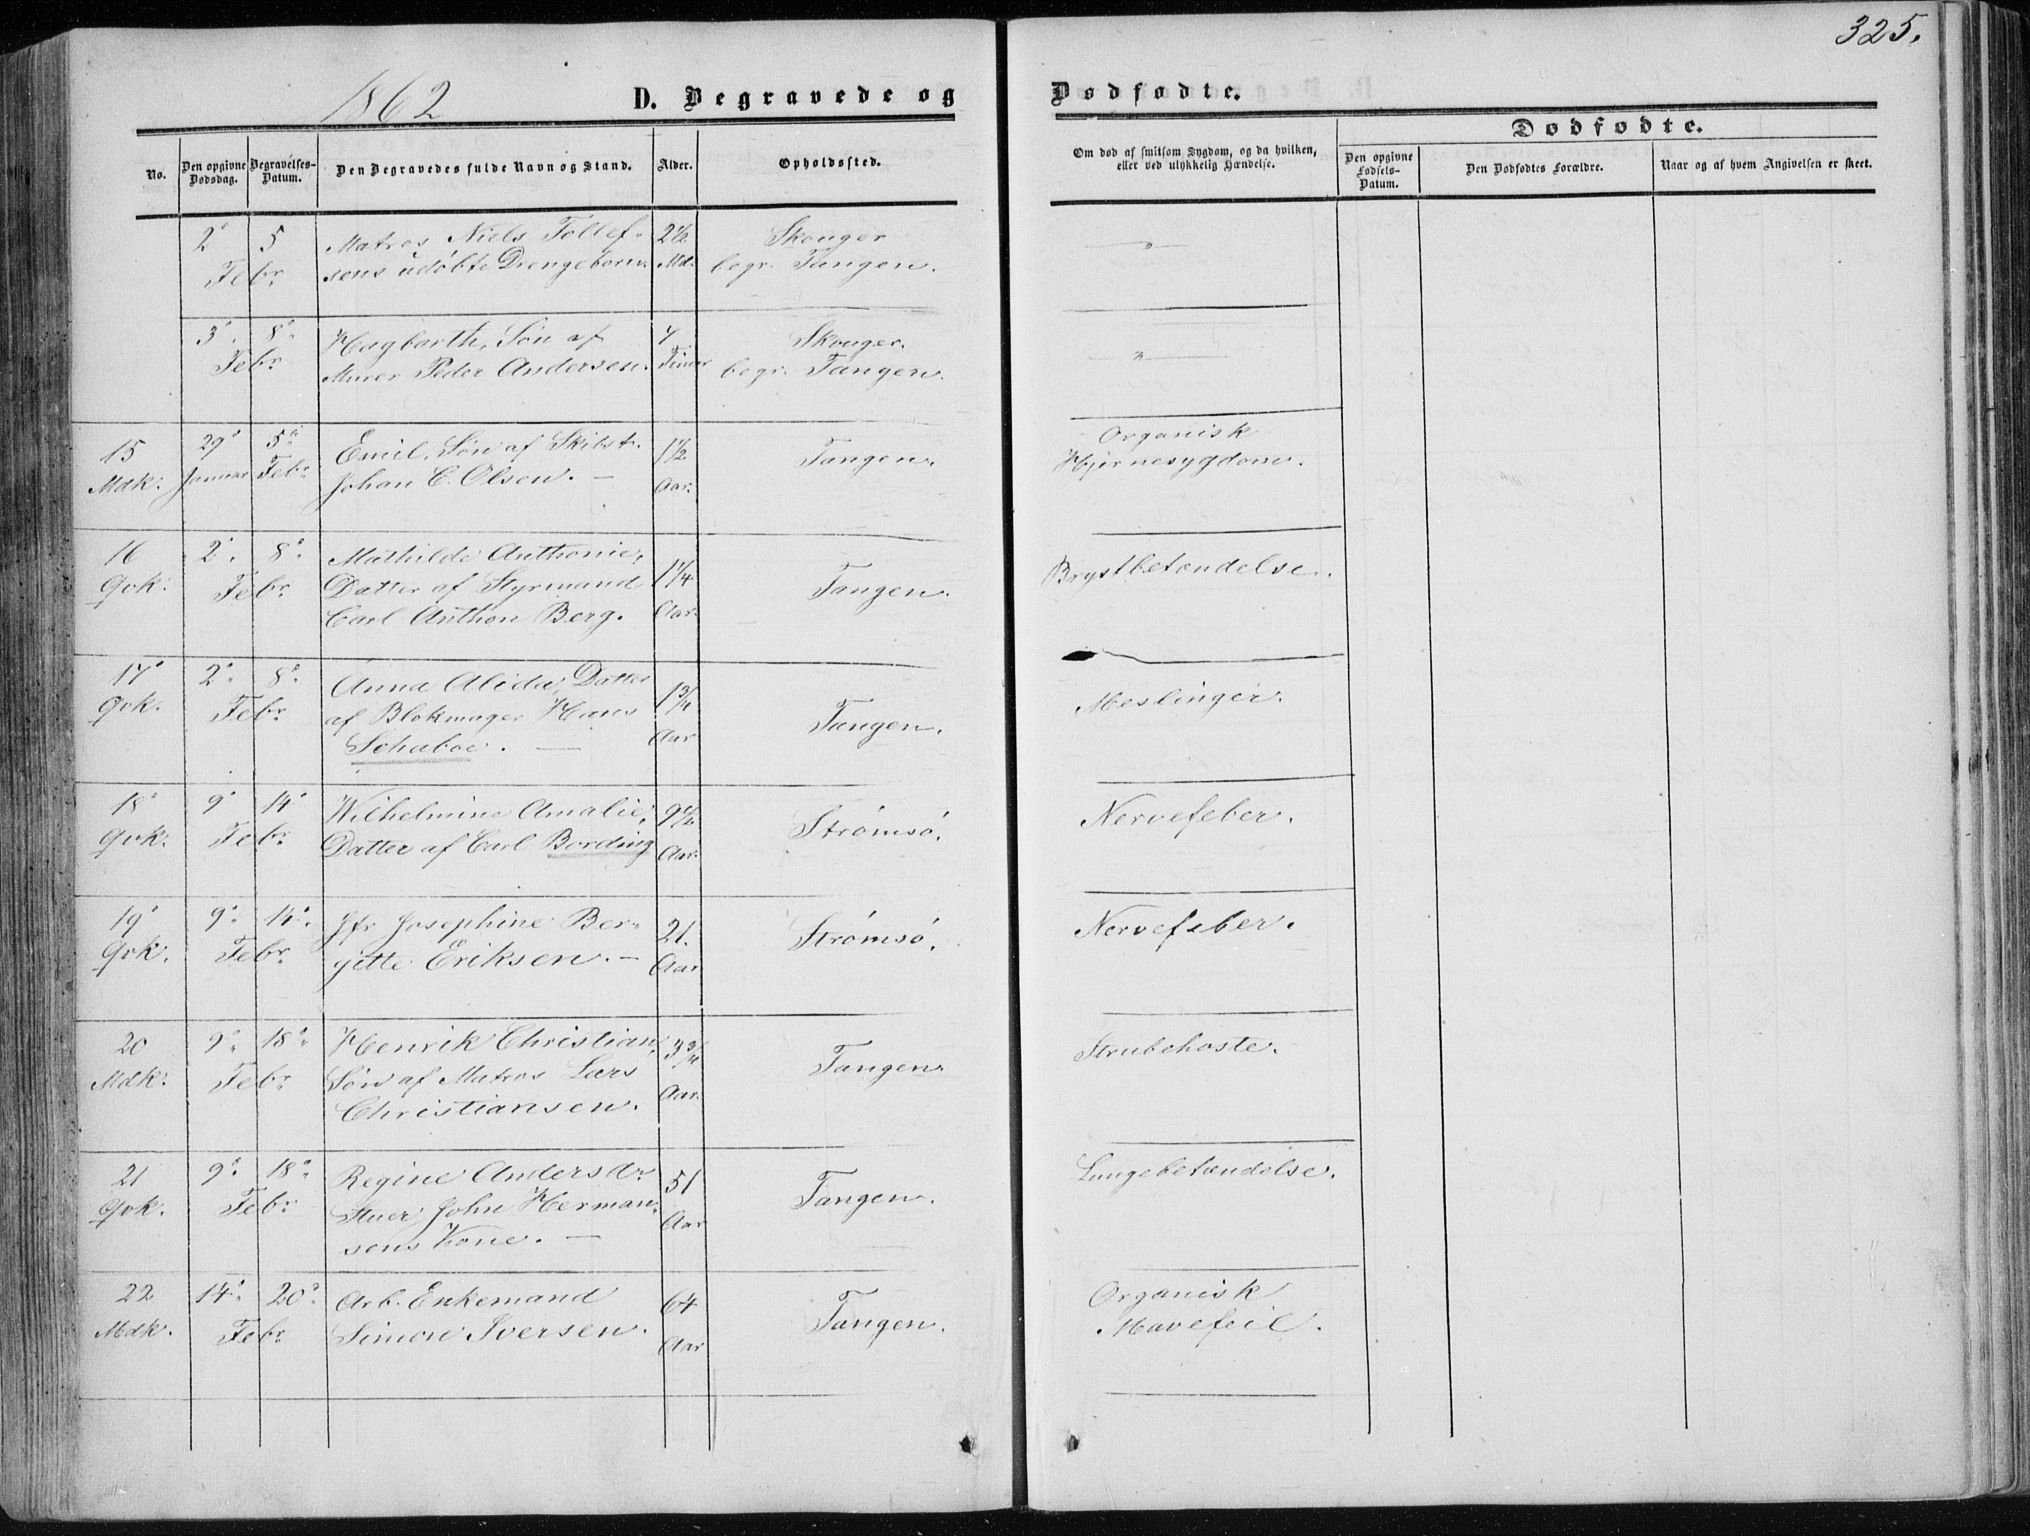 325.
1862
D. Begravede og Dødfødte.
Dødfødte.
No.
Den opgivne Dødsdag.
Begravelses-Datum.
Den Begravedes fulde Navn og Stand.
Alder.
Opholdssted.
Om død af smitsom Sygdom, og da hvilken,
eller ved ulykkelig Hændelse.
Den opgivne Fødsels-Datum.
Den Dødfødtes Forældre.
Naar og af hvem Angivelsen er skeet.
2 5 Matros Niels Tollef- 2½ Skouger "
Febr. sens udøbte Drengebarn. Md. begr. Tangen.
3. 8. Hagbarth, Søn af 4 Skouger. "
Febr. Murer Peder Andersen. Timer begr. Tangen.
15 29 5 Emil, Søn af Skibst. 1½ Tangen. Organisk
Mdk. Januar Febr. Johan C. Olsen. — Aar. Hjernesygdom.
16 2. 8. Mathilde Anthonie, 1¼ Tangen. Brystbetændelse.
Qvk. Febr. Datter af Styrmand
Carl Anthon Berg. Aar.
17 2. 8. Anna Alida, Datter 1¾ Tangen. Meslinger.
Qvk. Febr. af Blokmager Hans
Schaboe. — Aar
18 9 14 Wilhelmine Amalie, 9½ Strømsø. Nervefeber.
Qvk. Febr. Datter af Carl Bording Aar.
19 9. 14. Jfr Josephine Ber- 21. Strømsø. Nervefeber.
Qvk. Febr. gitte Eriksen. — Aar
20 9. 18. Henrik Christian, 3¾ Tangen. Strubehoste.
Mdk. Febr. Søn af Matros Lars
Christiansen. Aar.
21 9. 18. Regine Andersdr 51 Tangen. Lungebetændelse.
Qvk. Febr. Stuer John Herman-
sens Kone. — Aar
22 14. 20. Arb. Enkemand 64 Tangen. Organisk
Mdk. Febr. Simon Iversen. Aar Mavefeil.